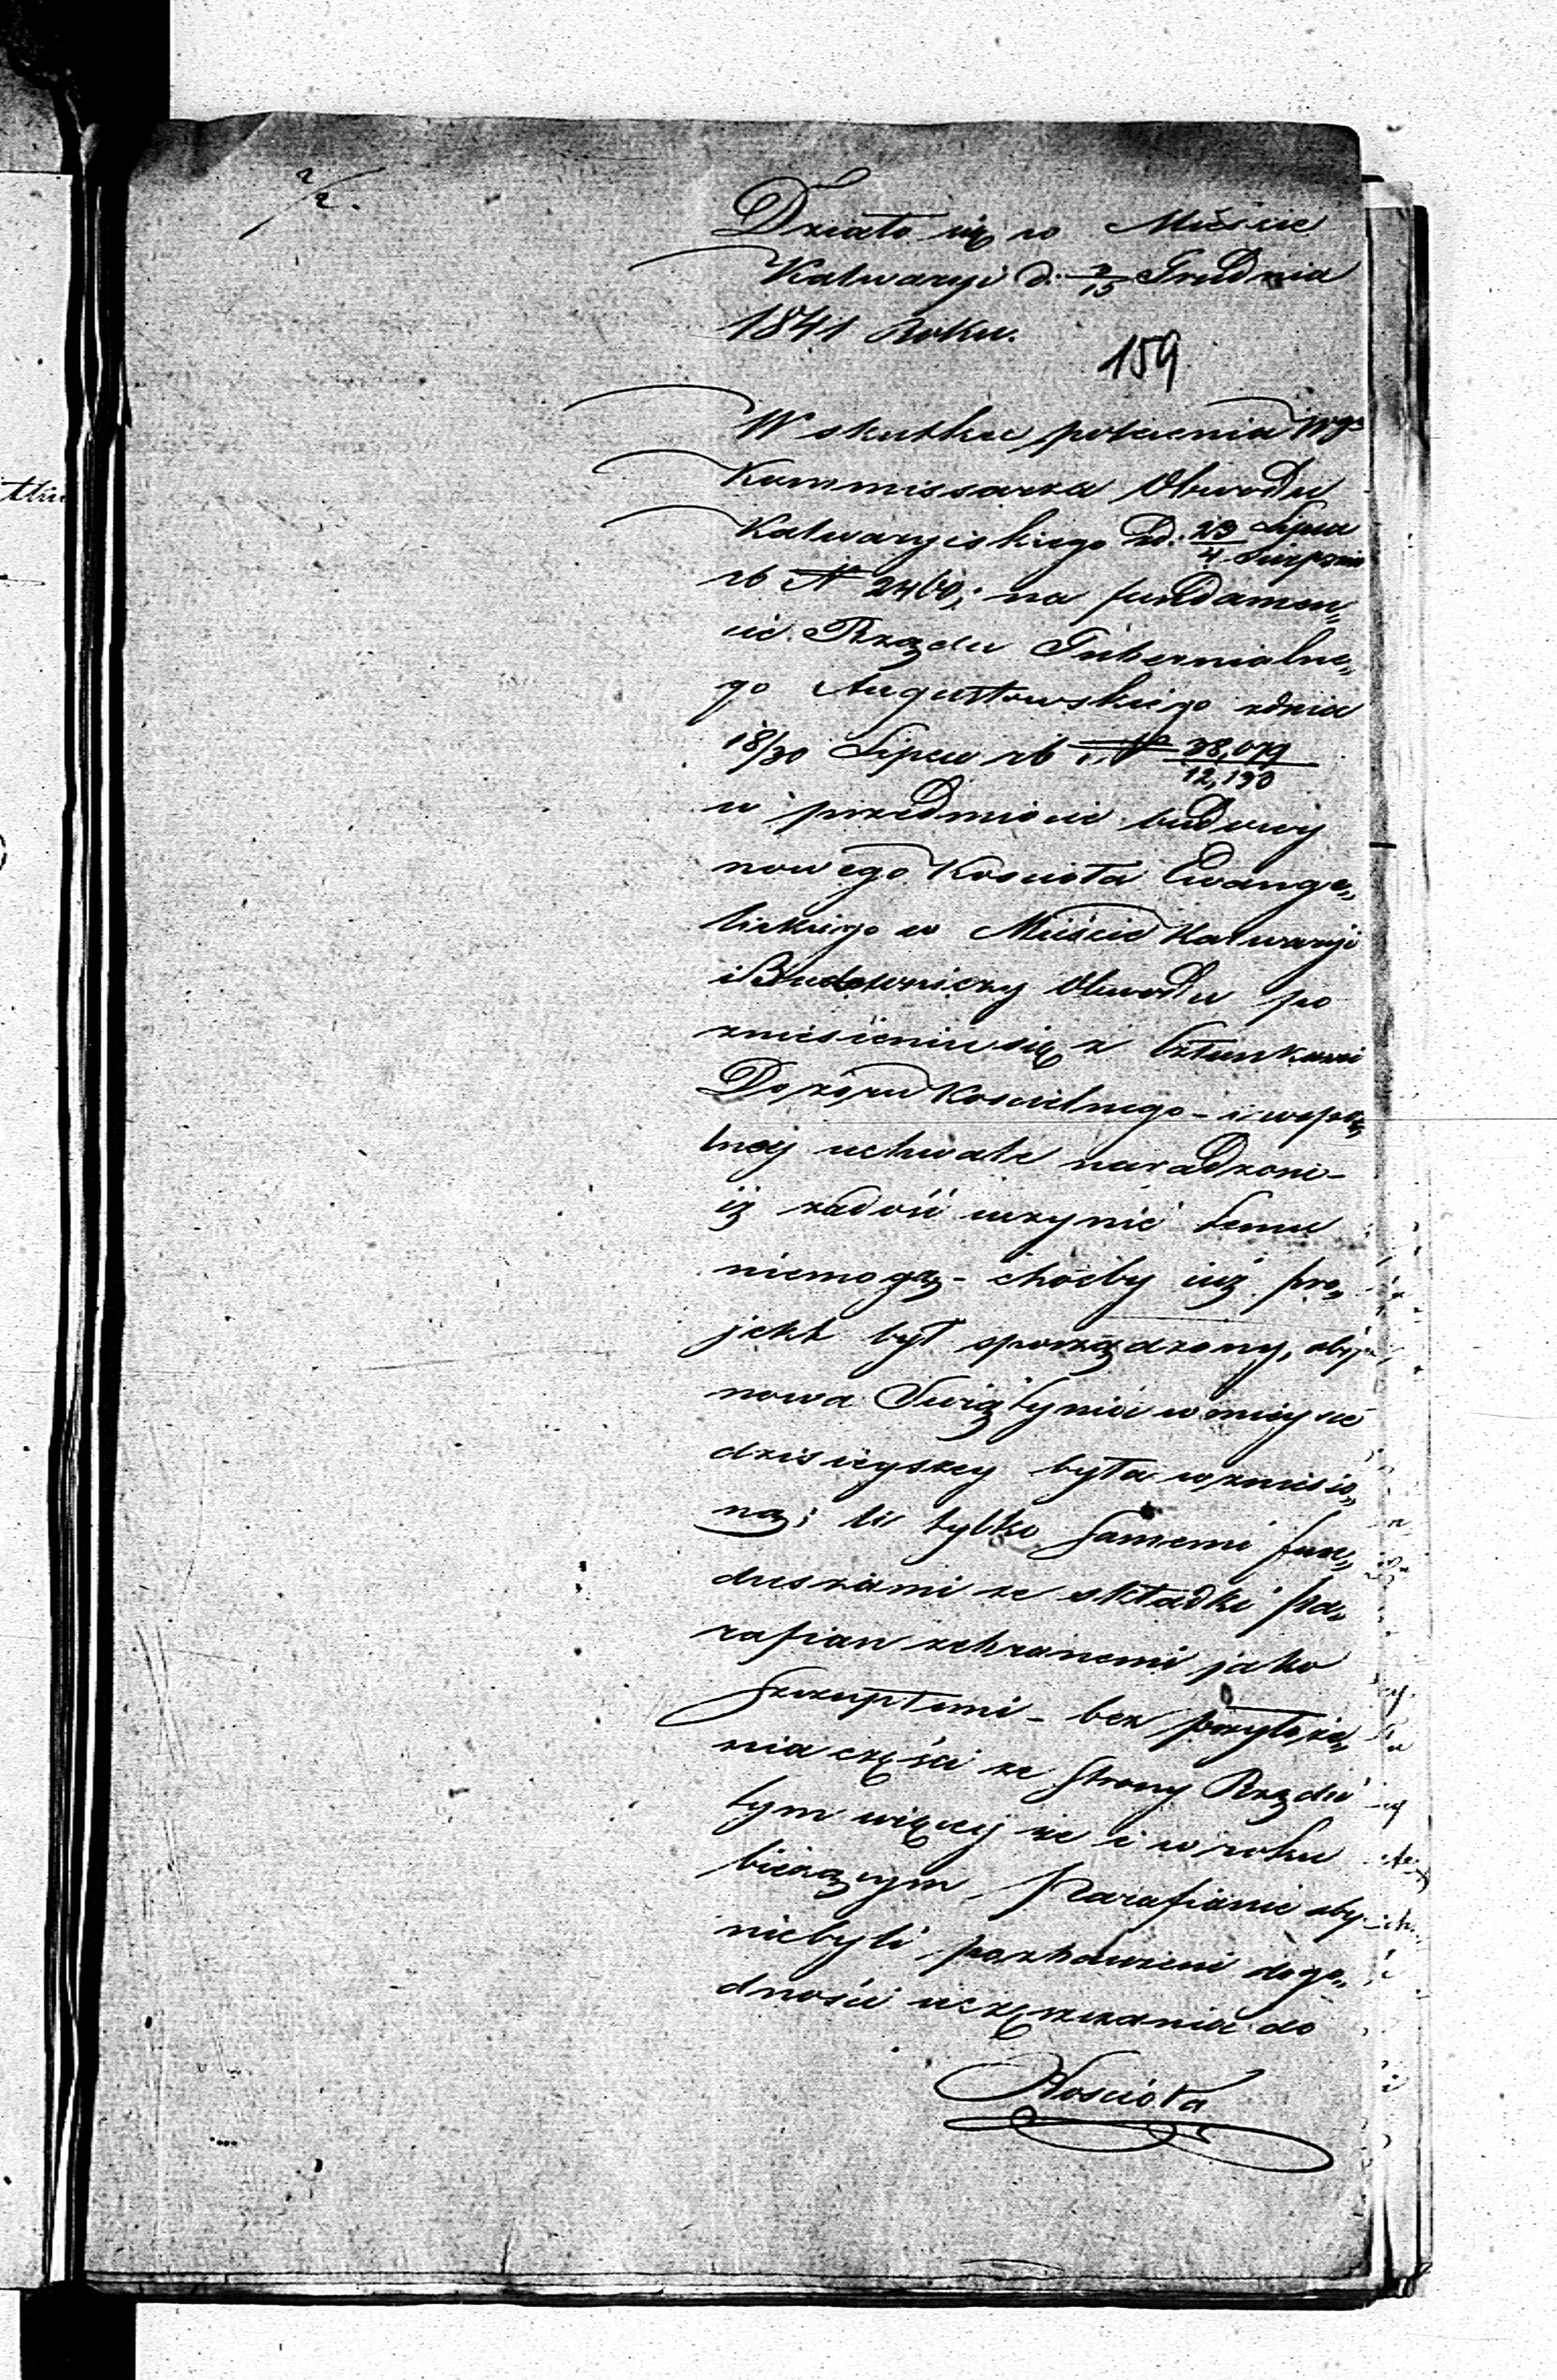 2/2.
Działo się w Mieście
Kalwaryi d. 3/15 Grudnia
1841 Roku.
159
W skutku polecenia Wgo
Kommissarza Obwodu
Kalwaryiskiego zd. 23 Lipca / 4 Sierpnia
rb N 2460; na fundamen„
cie Rządu Gubernialne„
go Augustowskiego zdnia
18/30 Lipca rb N 38,079 / 12,190
w przedmiocie budowy
nowego Koscioła Ewange„
lickiego w Mieście Kalwaryi
i Budowniczy Obwodu po
zniesieniu się z Członkami
Dozoru Koscielnego - i wspó„
lnej uchwale naradzone -
iż zadość uczynić temu
niemogą - choćby iuż pro„
jekt był sporządzony, aby
nowa Swiątynia w mieysce
dzisieyszey była wzniesio„
ną; lecz tylko samemi fun„
duszami ze składki pa„
rafian zebranemi jako
szczupłemi - bez przyłoże„
nia części ze strony Rządu
tym więcej że i w roku
bieżącym Parafianie aby
niebyli pozbawieni dogo„
dności uczęszczania do
Koscioła